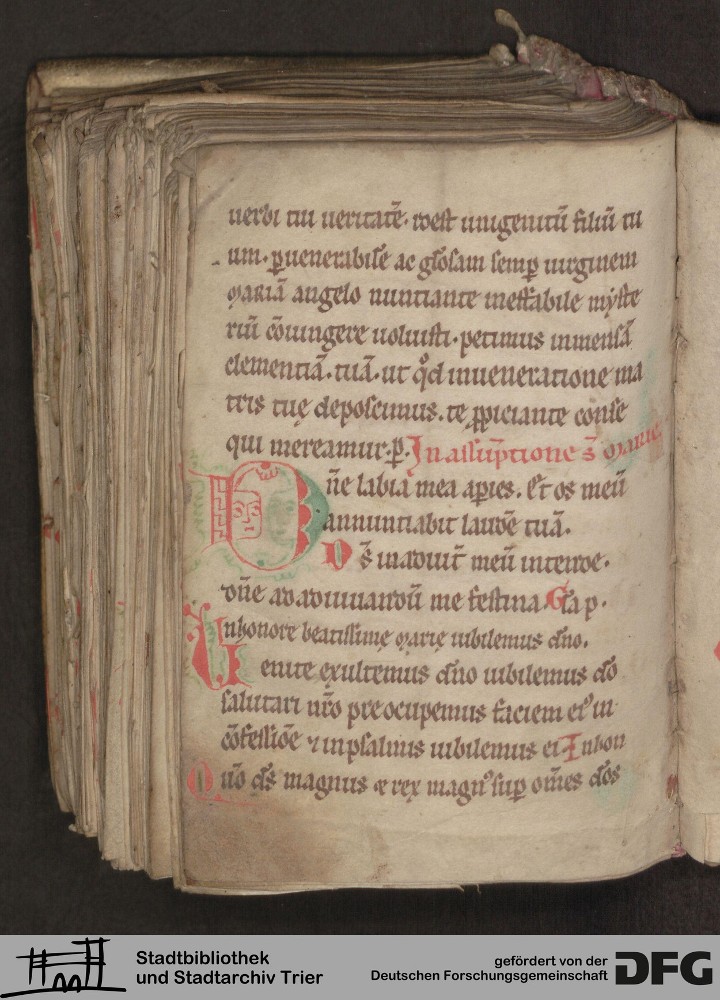 uerbi tui ueritatē. idest unigenitū filiū tu
um. ꝑ uenerabilē ac gl̄osam semꝑ uirginem
MARIĀ angelo nuntiante ineffabile myste
riū cōiungere uoluisti. petimus inmensā
clementiā. tuā. ut qͦd in ueneratione ma
tris tuę deposcimus. te ꝓpiciante conse
qui mereamur. ꝑ. In assūptione s̄ marie
Dn̄e labia mea aꝑies. Et os meū
annuntiabit laudē tuā.
Ds̄ in adiut̄ meū intende.
dn̄e ad adiuuandū me festina. Gl̄a p.
In honore beatissimę marię iubilemus dn̄o.
Venite exultemus dn̄o iubilemus dō
salutari nr̄o preocupemus faciem eiꝰ in
cōfessiōe ⁊ in psalmis iubilemus ei In hon
Qm̄ ds̄ magnus & rex magnꝰ suꝑ om̄es dōs
Stadtbibliothek
und Stadtarchiv Trier
gefördert von der
Deutschen Forschungsgemeinschaft
DFG